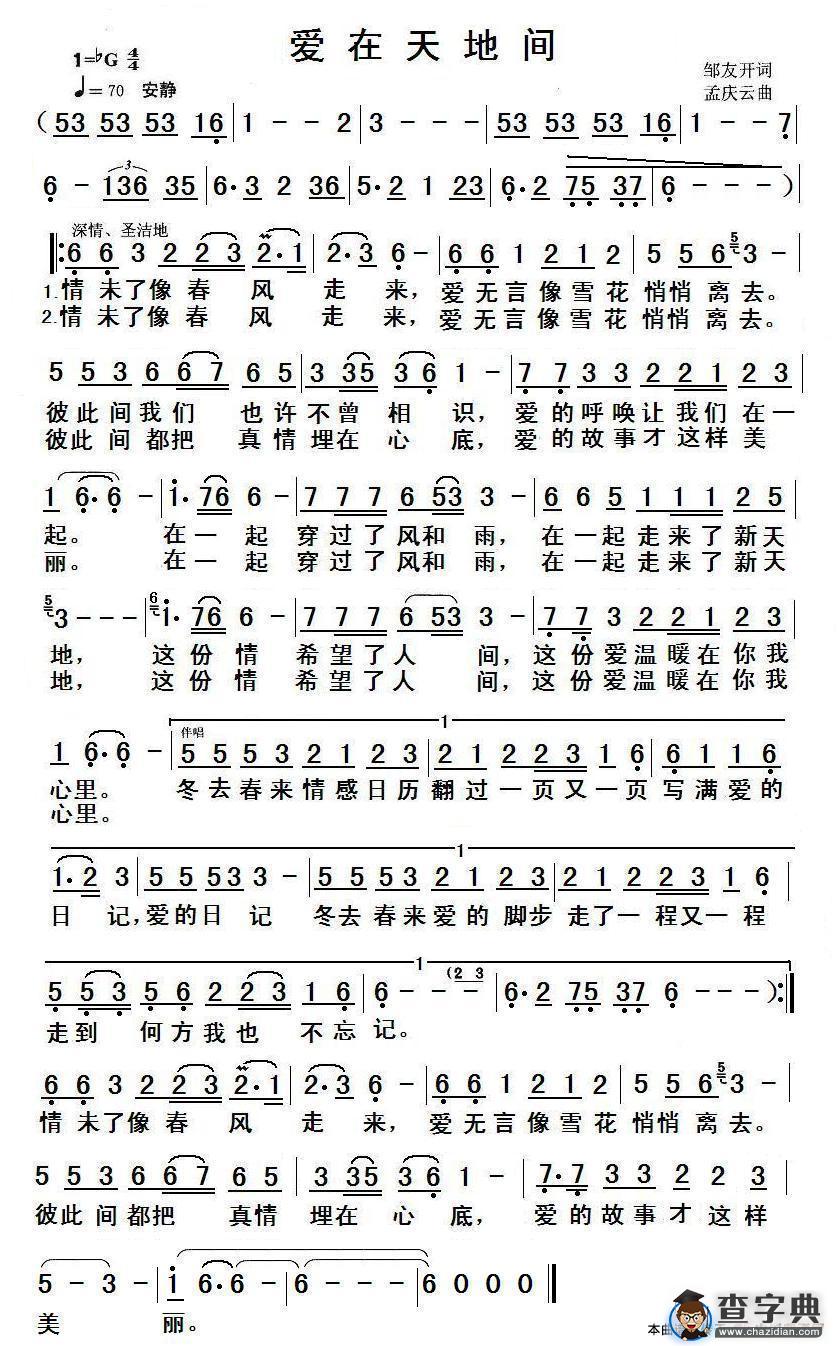 爱在天地间
1=♭G 4/4
邹友开词
♩=70 安静
孟庆云曲
( 53 53 53 16 | 1 - - 2 | 3 - - - | 53 53 53 16 | 1 - - 7 |
6 - 136 35 | 6· 3 2 36 | 5· 2 1 23 | 6· 2 75 37 | 6 - - - )
深情、圣洁地
‖: 6 6 3 2 2 2 3 2·1 | 2·3 6 - | 6 6 1 2 1 2 | 5 5 6 3 - |
1.情未了像春风走来，爱无言像雪花悄悄离去。
2.情未了像春风走来，爱无言像雪花悄悄离去。
5 5 3 6 6 7 6 5 | 3 35 3 6 1 - | 7 7 3 3 2 2 1 2 3 |
彼此间我们也许不曾相识，爱的呼唤让我们在一
彼此间都把真情埋在心底，爱的故事才这样美
1 6·6 - | 1· 76 6 - | 7 7 7 6 53 3 - | 6 6 5 1 1 1 2 5 |
起。在一起穿过了风和雨，在一起走来了新天
丽。在一起穿过了风和雨，在一起走来了新天
5 3 - - - | 6 1· 76 6 - | 7 7 7 6 53 3 - | 7 7 3 2 2 1 2 3 |
地，这份情希望了人间，这份爱温暖在你我
地，这份情希望了人间，这份爱温暖在你我
1
伴唱
1 6·6 - | 5 5 5 3 2 1 2 3 | 2 1 2 2 3 1 6 | 6 1 1 6 |
心里。冬去春来情感日历翻过一页又一页写满爱的
心里。
1
1·2 3 | 5 5 53 3 - | 5 5 53 2 1 2 3 | 2 1 2 2 3 1 6 |
日记，爱的日记冬去春来爱的脚步走了一程又一程
1
5 5 3 5 6 2 2 3 1 6 | 6 - - - (2 3 | 6· 2 75 37 6 - - - ) :‖
走到何方我也不忘记。
6 6 3 2 2 3 2·1 | 2·3 6 - | 6 6 1 2 1 2 | 5 5 6 5 3 - |
情未了像春风走来，爱无言像雪花悄悄离去。
5 5 3 6 6 7 6 5 | 3 35 3 6 1 - | 7·7 3 3 2 2 3 |
彼此间都把真情埋在心底，爱的故事才这样
5 - 3 - | 1 6·6 - | 6 - - - | 6 0 0 0 ‖
美丽。
本曲
查字典
www.chazidian.com